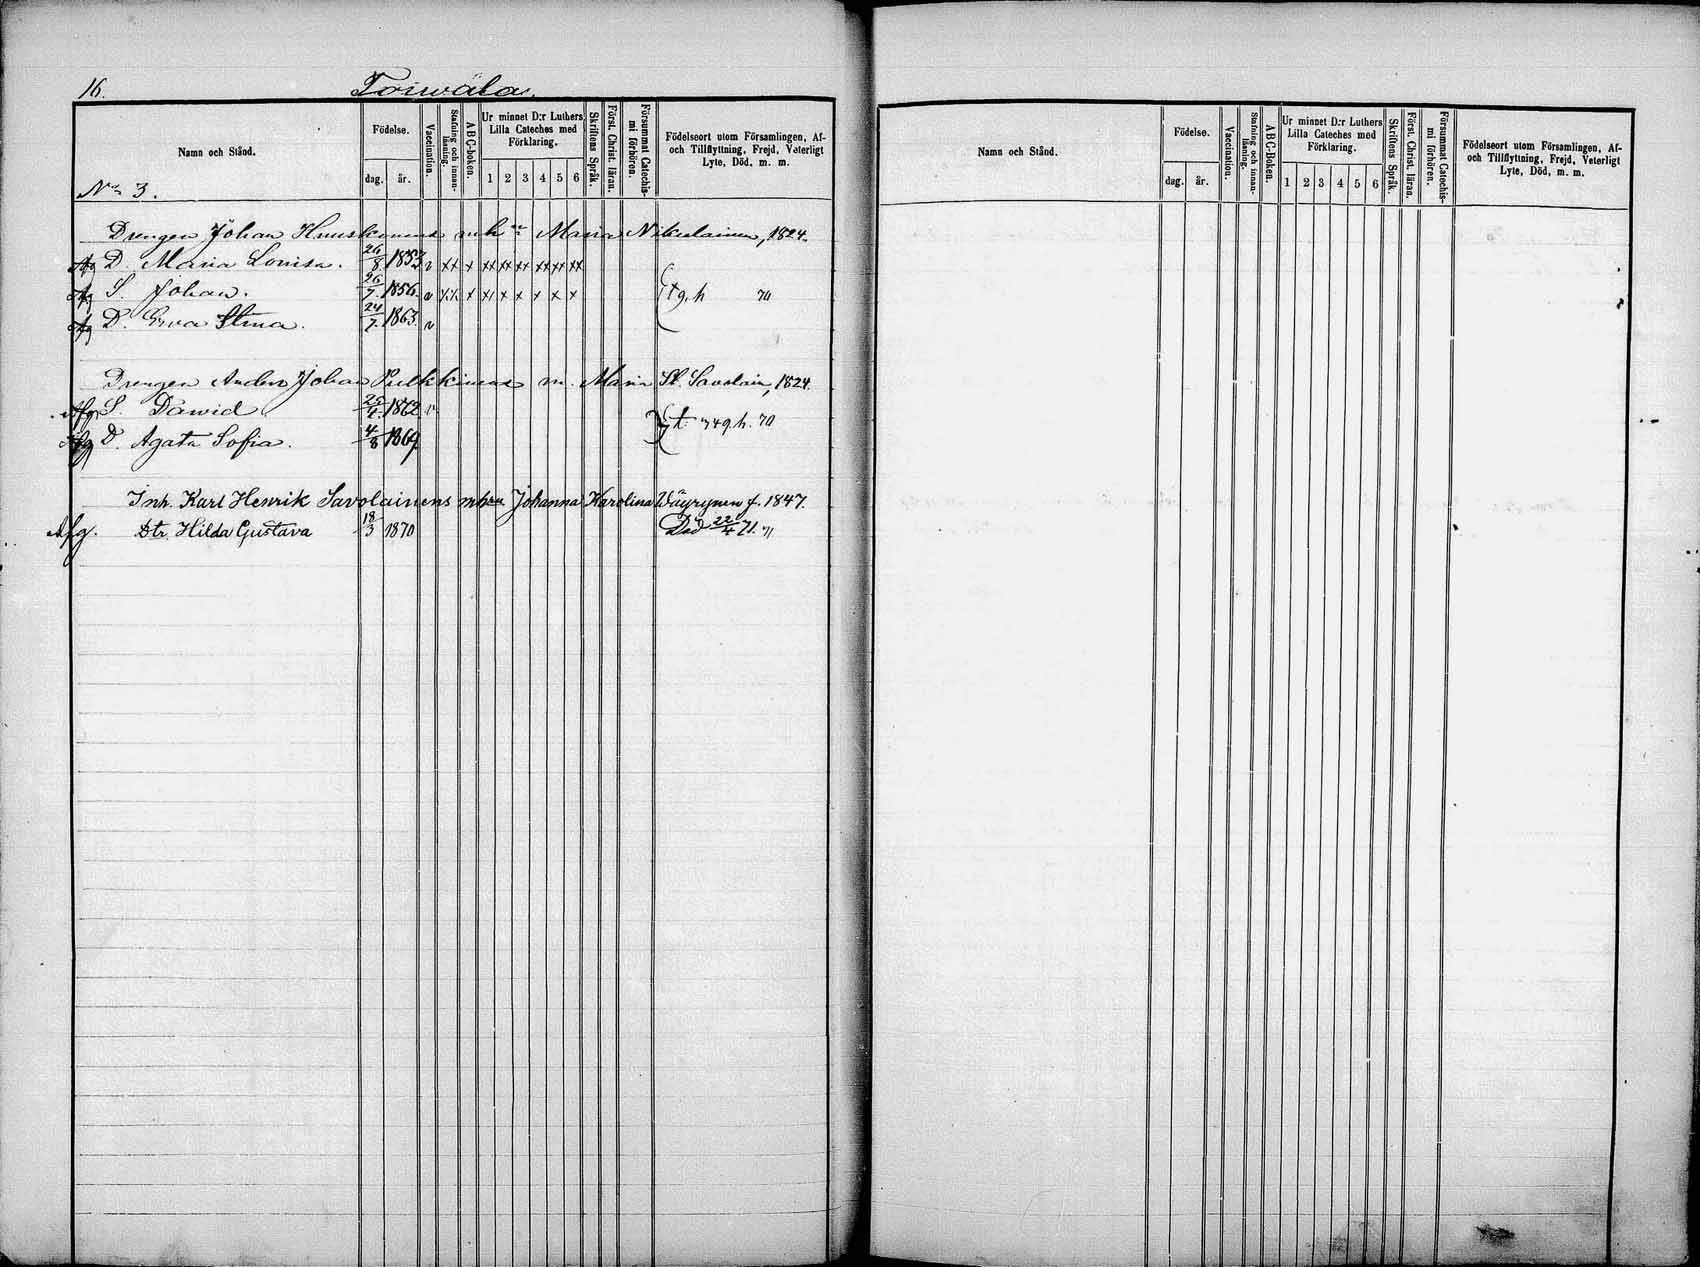 16. Toiwala.
Namn och Stånd.
Födelse.
dag. år.
Vaccination.
Stafning och innanläsning.
ABC-boken.
Ur minnet D:r Luthers
Lilla Cateches med
Förklaring.
1 2 3 4 5 6
Skriftens Språk.
Först. Christ. läran.
Försummat Catechismi förhören.
Födelseort utom Församlingen, Af-
och Tillflyttning, Frejd, Veterligt
Lyte, Död, m. m.
No 3.
Drengen Johan Huuskonens m h:u Maria Nikulainen, 1824.
Afg D. Maria Lovisa. 26/8 1853 v xx x xx xx xx xx xx xx
Afg S. Johan. 26/7 1856. v xx x x x x x x x 70
Afg D. Eva Stina. 24/7 1863. v
Drengen Anders Johan Pulkkinens m. Maria St. Savolain, 1824.
Afg S. Dawid 25/4 1862 v
Afg D. Agata Sofia. 4/8 1869. 70
Inh. Karl Henrik Savolainens m hru Johanna Karolina Wäyrynen f. 1847.
Afg. Dtr. Hilda Gustava 18/3 1870 Död 22/4 71. 71
Namn och Stånd.
Födelse.
dag. år.
Vaccination.
Stafning och innanläsning.
ABC-Boken.
Ur minnet D:r Luthers
Lilla Cateches med
Förklaring.
1 2 3 4 5 6
Skriftens Språk.
Först. Christ. läran.
Försummat Catechismi förhören.
Födelseort utom Församlingen, Af-
och Tillflyttning, Frejd, Veterligt
Lyte, Död, m. m.